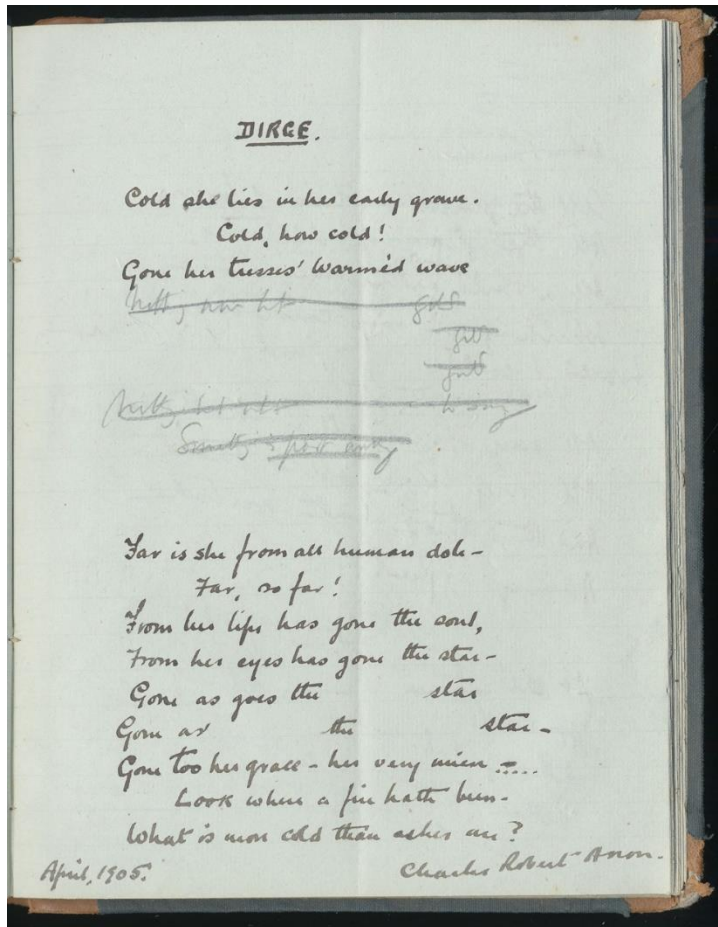 DIRGE.
Cold she lies in her early grave.
Cold, how cold!
Gone her tresses' warmèd wave
gold
Far is she from all human dole –
Far, so far!
From her lips has gone the soul,
From her eyes has gone the star –
Gone as goes the star
Gone as the star –
Gone too her grace – her very mien .....
Look where a fire hath been –
What is more cold than ashes are?
April, 1905.
Charles Robert Anon.